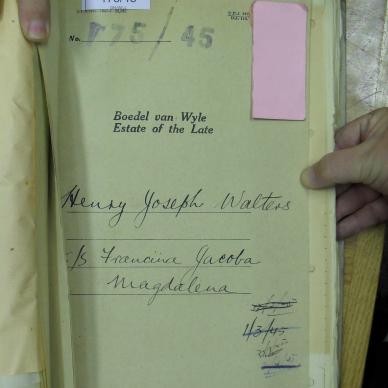 No. 175/45
Boedel van Wyle
Estate of the Late
Henry Joseph Walters
s/s Francina Jacoba
Magdalena
1/3/45